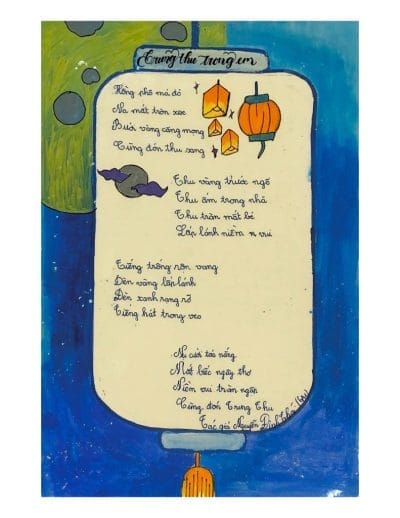 Trung thu trong em
Hồng phô má đỏ
Na mắt tròn xoe
Bưởi vàng căng mọng
Cùng đón thu sang
Thu vàng trước ngõ
Thu ấm trong nhà
Thu tràn mắt bé
Lấp lánh niềm vui
Tiếng trống rộn vang
Đèn vàng lấp lánh
Đèn xanh rạng rỡ
Tiếng hát trong veo
Nụ cười toả nắng
Mắt biếc ngây thơ
Niềm vui tràn ngập
Cùng đón Trung Thu
Tác giả Nguyễn Đình